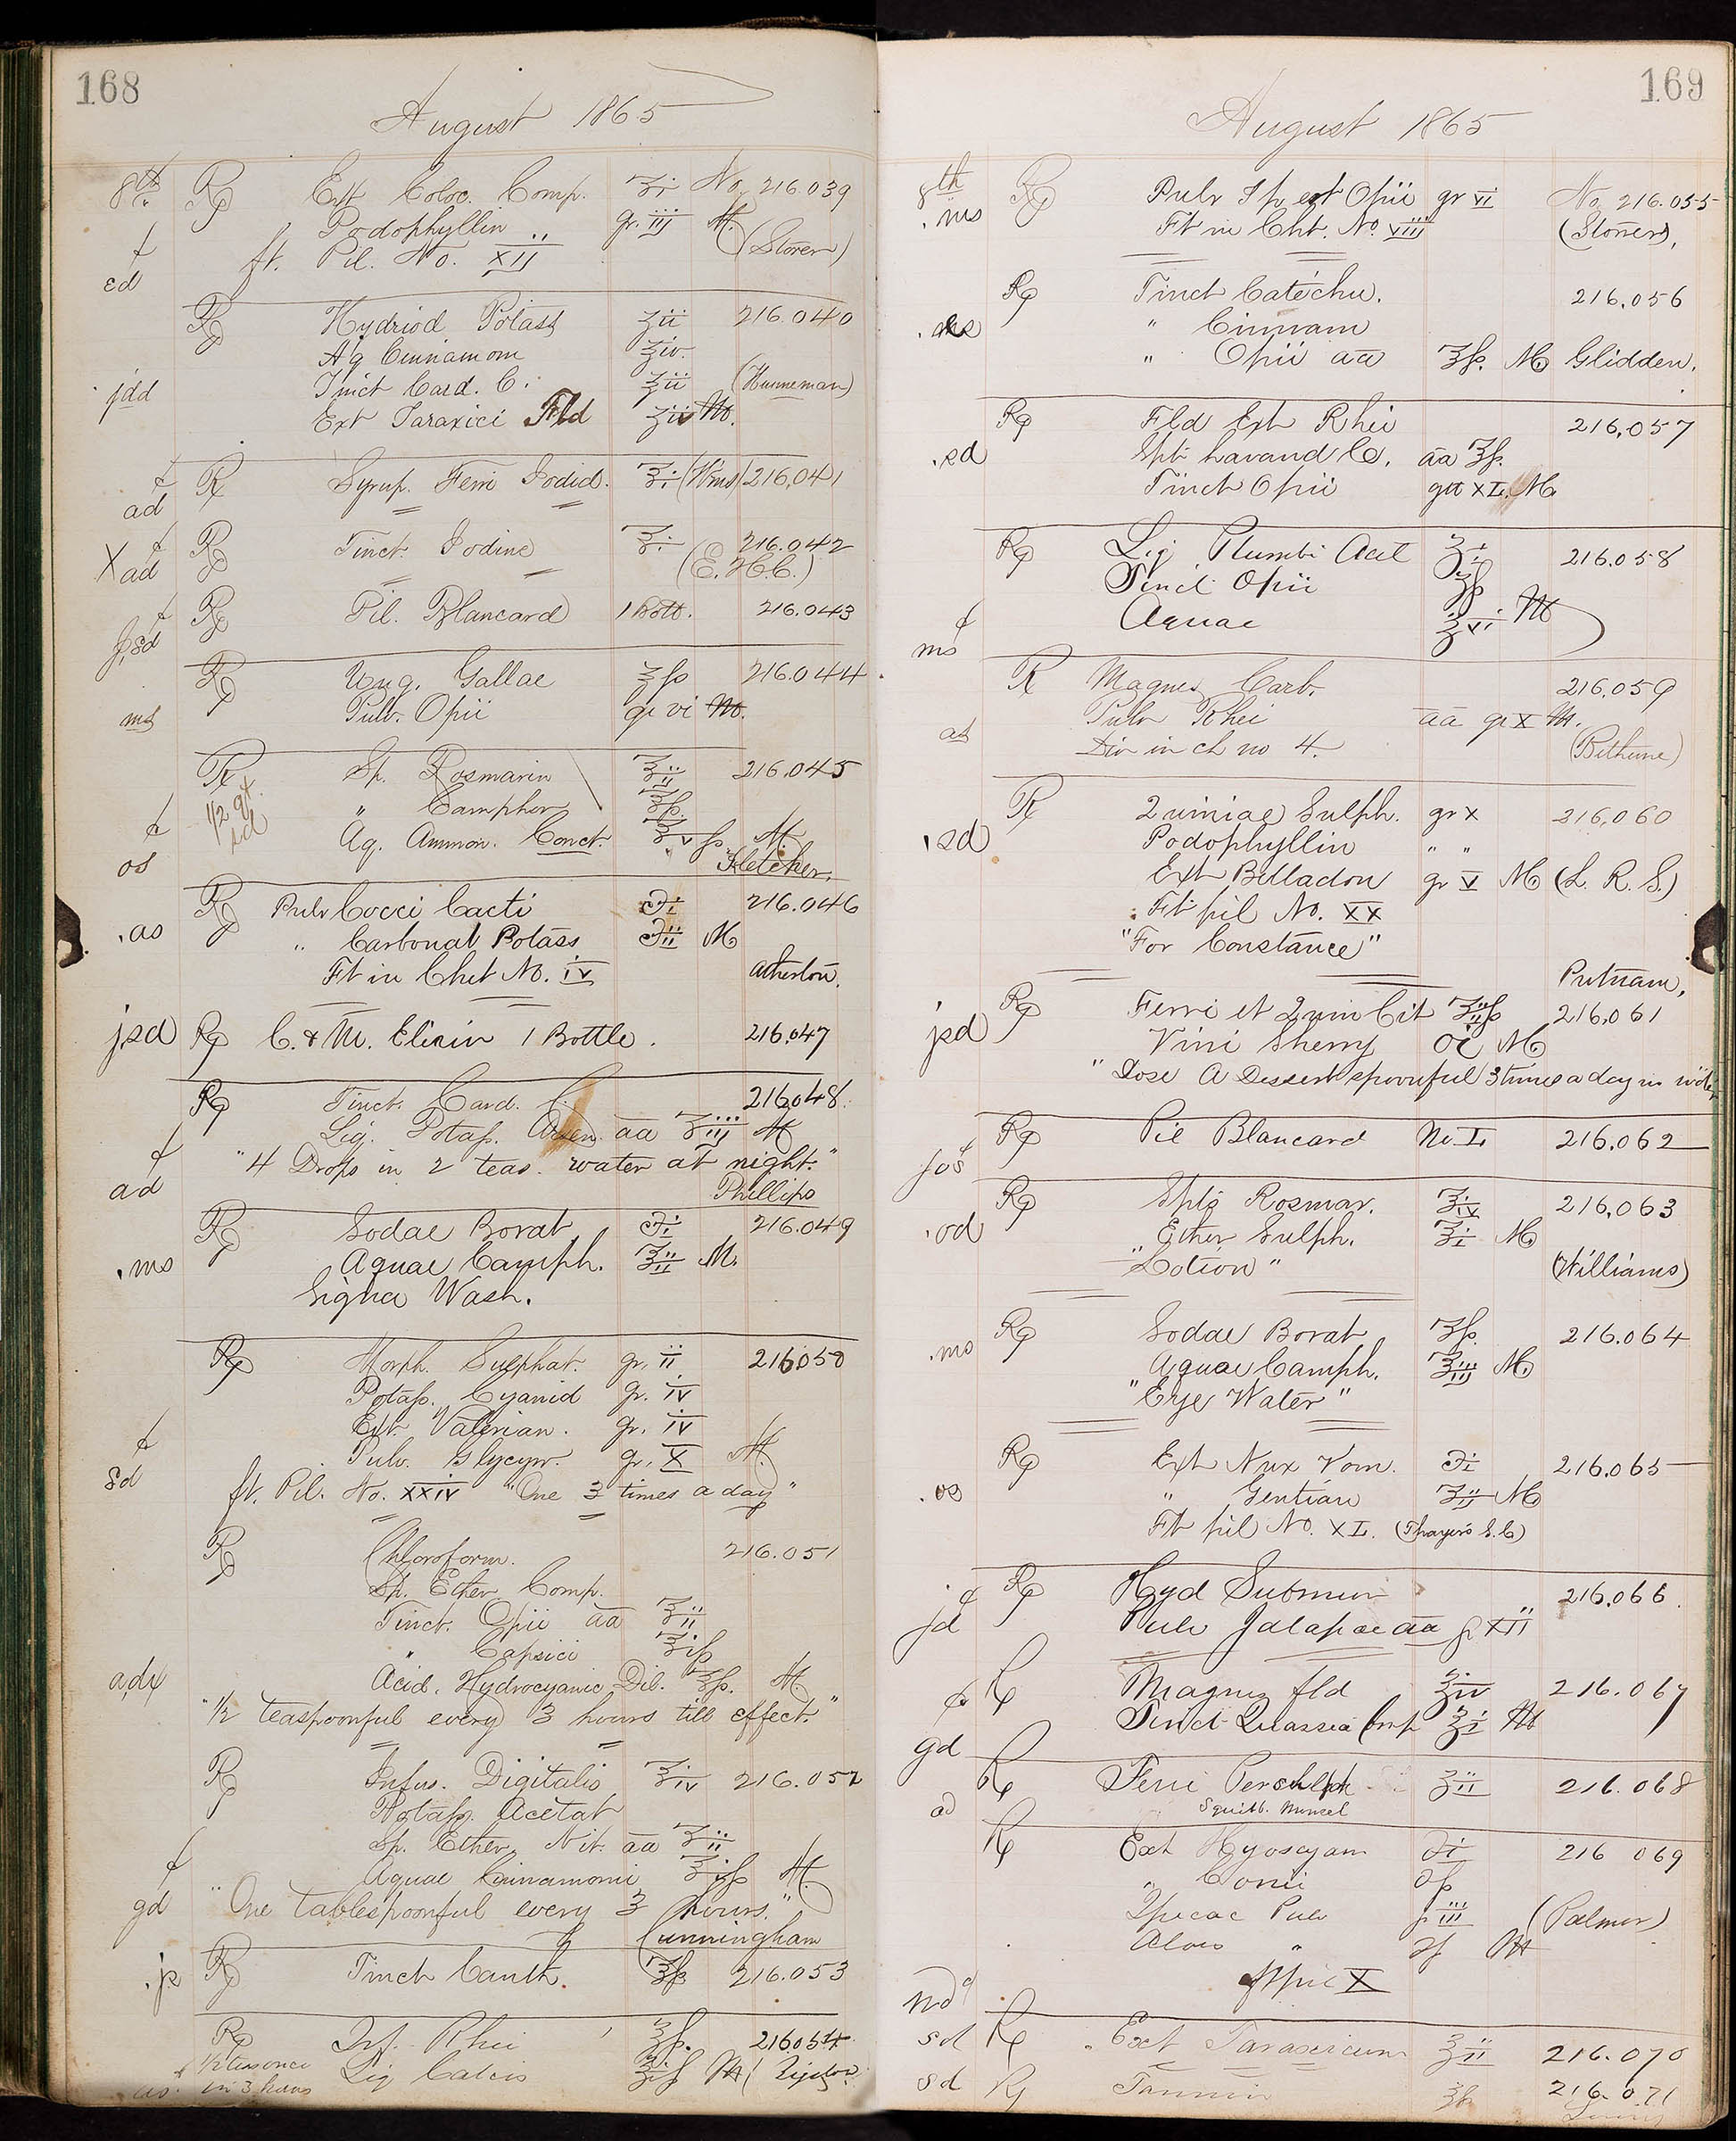 168
August 1865
8th. Rx Ext Coloc. Comp. ʒi No. 216.039
Podophyllin gr. iij M.
ft. Pil. No. xij (Storer)
cd
Rx Hydriod Potass ʒii 216.040
Aq Cinnamom ℥iv.
jdd Tinct Card. C. ʒii (Hunneman)
Ext Taraxici Fld M.
ad Rx Syrup. Ferri Iodid. ℥i (Wms) 216,041
X ad Rx Tinct. Iodine ℥i 216.042
(E. H. C.)
Rx Pil. Blancard 1 bott. 216.043
Rx Ung. Gallae ℥ß 216.044
ms Pulv. Opii gr vi M.
Rx Sp. Rosmarin ℥ii 216.045
1/2 qt. sd " Camphor ℥ß.
os Aq. Ammon. Conct. M.
Fletcher.
Rx Pulv Cocci Cacti ℈i 216.046
.as " Carbonat Potass ℈ii M
Ft in Cht No. iv Atherton.
jsd Rx C. & M. Elixir 1 Bottle. 216,047
Rx Tinct. Card. C. 216048.
Liq. Potas. Arsen. aa ℥iij M
"4 Drops in 2 teas. water at night."
ad Phillips
Rx Sodae Borat ℈i 216.049
.ms Aquae Camph. ℥ii M.
Signa Wash.
Rx Morph. Sulphat. gr. ii 216050
Potas. Cyanid gr. iv
Ext. Valerian. gr. iv
Pulv. Glycyrr. gr. X M.
sd ft. Pil. No. xxiv "One 3 times a day"
Rx Chloroform. 216.051
Sp. Ether Comp.
Tinct. Opii aa ℥ii
" Capsici ℥iß
Acid. Hydrocyanic Dil. ℥ß. M
"1/2 teaspoonful every 3 hours till effect."
Rx Infus. Digitalis ℥iv 216.052
Potass. Acetat
Sp. Ether. Nit. aa ℥ii
Aquae Cinnamomi ℥iß M
gd "One tablespoonful every 3 hours."
Cunningham
Rx Tinct Canth. ℥ß 216.053
Rx Inf. Rhei ℥ß. 216054
Liq Calcis M
in 3 hours
169
August 1865
8th Rx Pulv Ip et Opii gr vi No. 216.055
.ms Ft in Cht. No. viii (Storer),
Rx Tinct Catechu. 216,056
" Cinnam
" Opii aa ℥ß. M Glidden.
Rx Fld Ext Rhei 216,057
.sd Spts Lavand Co. aa ℥ß.
Tinct Opii gtt XL. M
Rx Liq Plumbi Acet ʒi 216.058
Tinct Opii ʒß
Aquae ʒvi M
ms
Rx Magnes Carb. 216,059
as Pulv Rhei aa gr X M.
Div in ch no 4. (Bethune)
Rx Quiniae Sulph. gr x 216,060
.sd Podophyllin " "
Ext Belladon gr v M (L. R. S.)
Ft pil No. XX
"For Constance"
Putnam,
Rx Ferri et Quin Cit ʒiiß 216,061
jsd Vini Sherry Oi M
"Dose A Dessert spoonful 3 times a day in water
Rx Pil Blancard No. L 216,062
jos
Rx Spts Rosmar. ℥iv 216,063
.od Ether Sulph. ℥i M
"Lotion" (Williams)
Rx Sodae Borat ʒß. 216.064
.ms Aquae Camph. ℥iij M
"Eye Water"
Rx Ext Nux Vom. ℈i 216,065
.os " Gentian ʒij M
Ft pil No. XL. (Thayers S. C)
Rx Hyd Submur 216,066.
jd Pulv Jalapae aa gr XII
Rx Magnes fld ʒiv 216.067
Tinct Quassia Comp ʒi M
gd
Rx Ferri Persulph ʒii 216.068
ad Squibb. Munsel
Rx Ext Hyoscyam ℈i 216 069
" Conii ℈ß
Ipecac Pulv gr iii (Palmer)
Aloes " M
ft pil X
sd Rx Ext Taraxicum ʒii 216.070
sd Rx Tannin ʒß 216.071